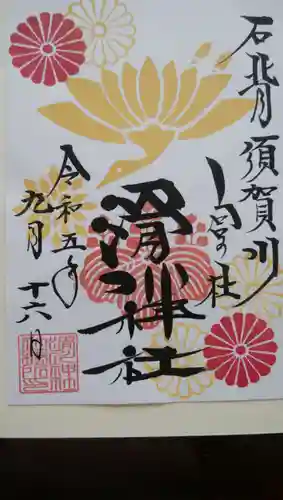 石背 須賀川
宮社
滑川神社
令和五年
九月
十六日